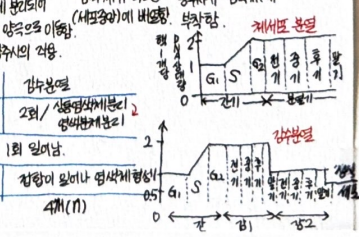 양극으로 이동함.
체세포 분열
핵1개당
DNA상대량
2
1
0
G₁
S
G₂
전기
중기
후기
말기
간기
분열기
감수분열
2회/ 상동염색체분리
염색분체분리 2
1회 일어남.
접합이 일어나 염색체형성
4개(n)
감수분열
2
1
0.5
0
G₁
S
G₂
전기
중기
후기
말기
전기
중기
후기
말기
간
감1
감2